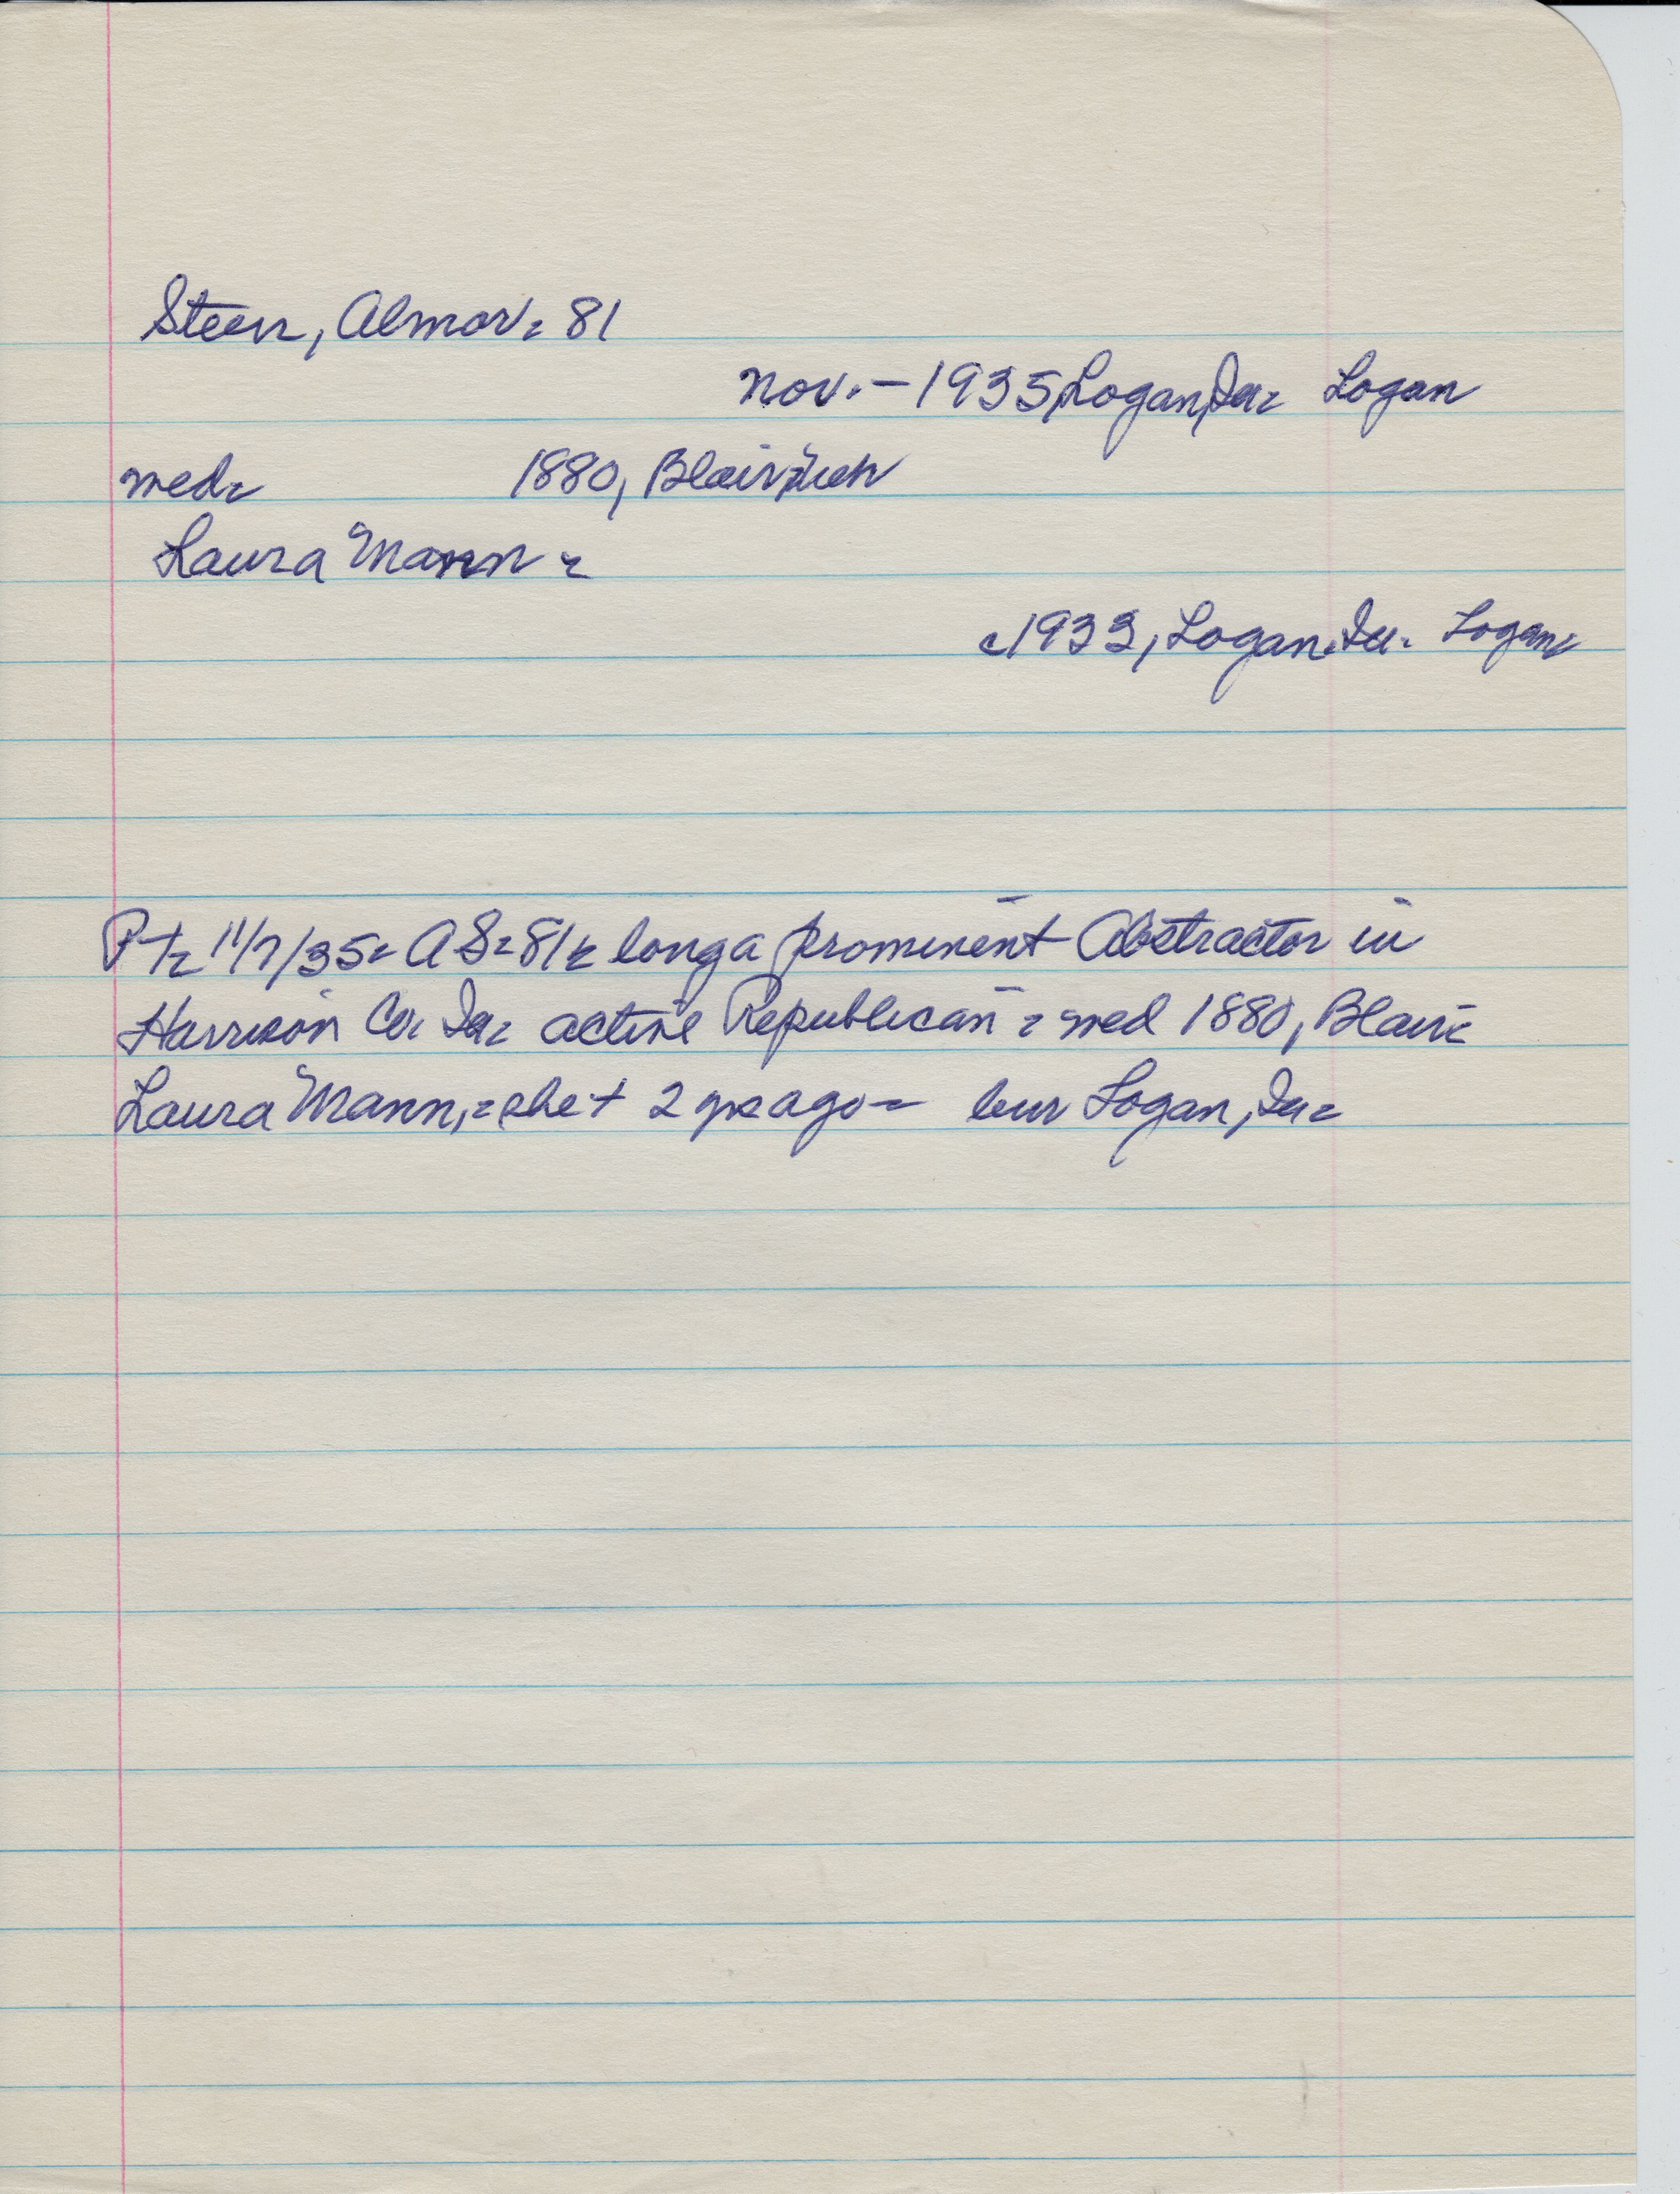 Steen, Almor - 81
Nov. - 1935, Logan, Ia - Logan
med - 1880, Blair, Neb
Laura Mann -
c1933, Logan, Ia. Logan -
Pt - 11/7/35 - AS - 81 - long a prominent Abstractor in
Harrison Co. Ia - active Republican - med 1880, Blair -
Laura Mann, - she + 2 yrs ago - bur Logan, Ia -